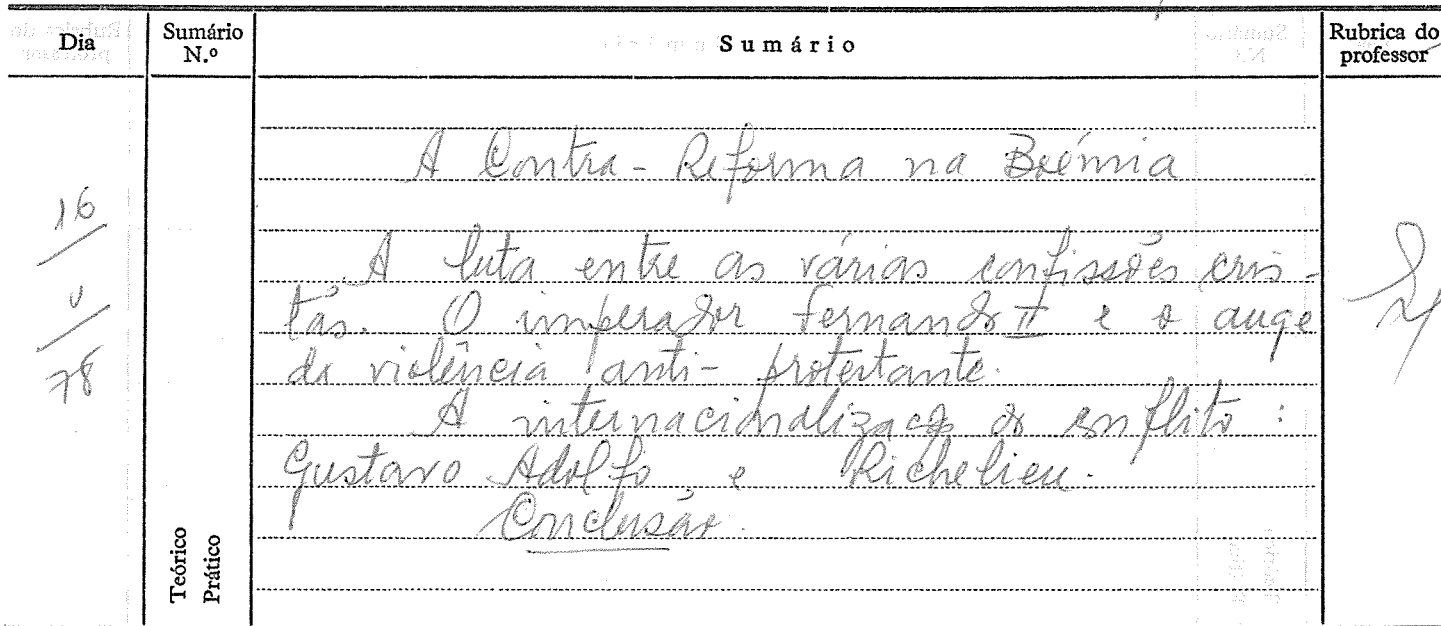 Dia
Sumário N.º
Sumário
Rubrica do professor
A Contra-Reforma na Boémia
16
V
78
A luta entre as várias confissões cris-
tãs. O imperador Fernando II e o auge
da violência anti-protestante.
A internacionalização do conflito:
Gustavo Adolfo e Richelieu.
Conclusão.
Teórico
Prático